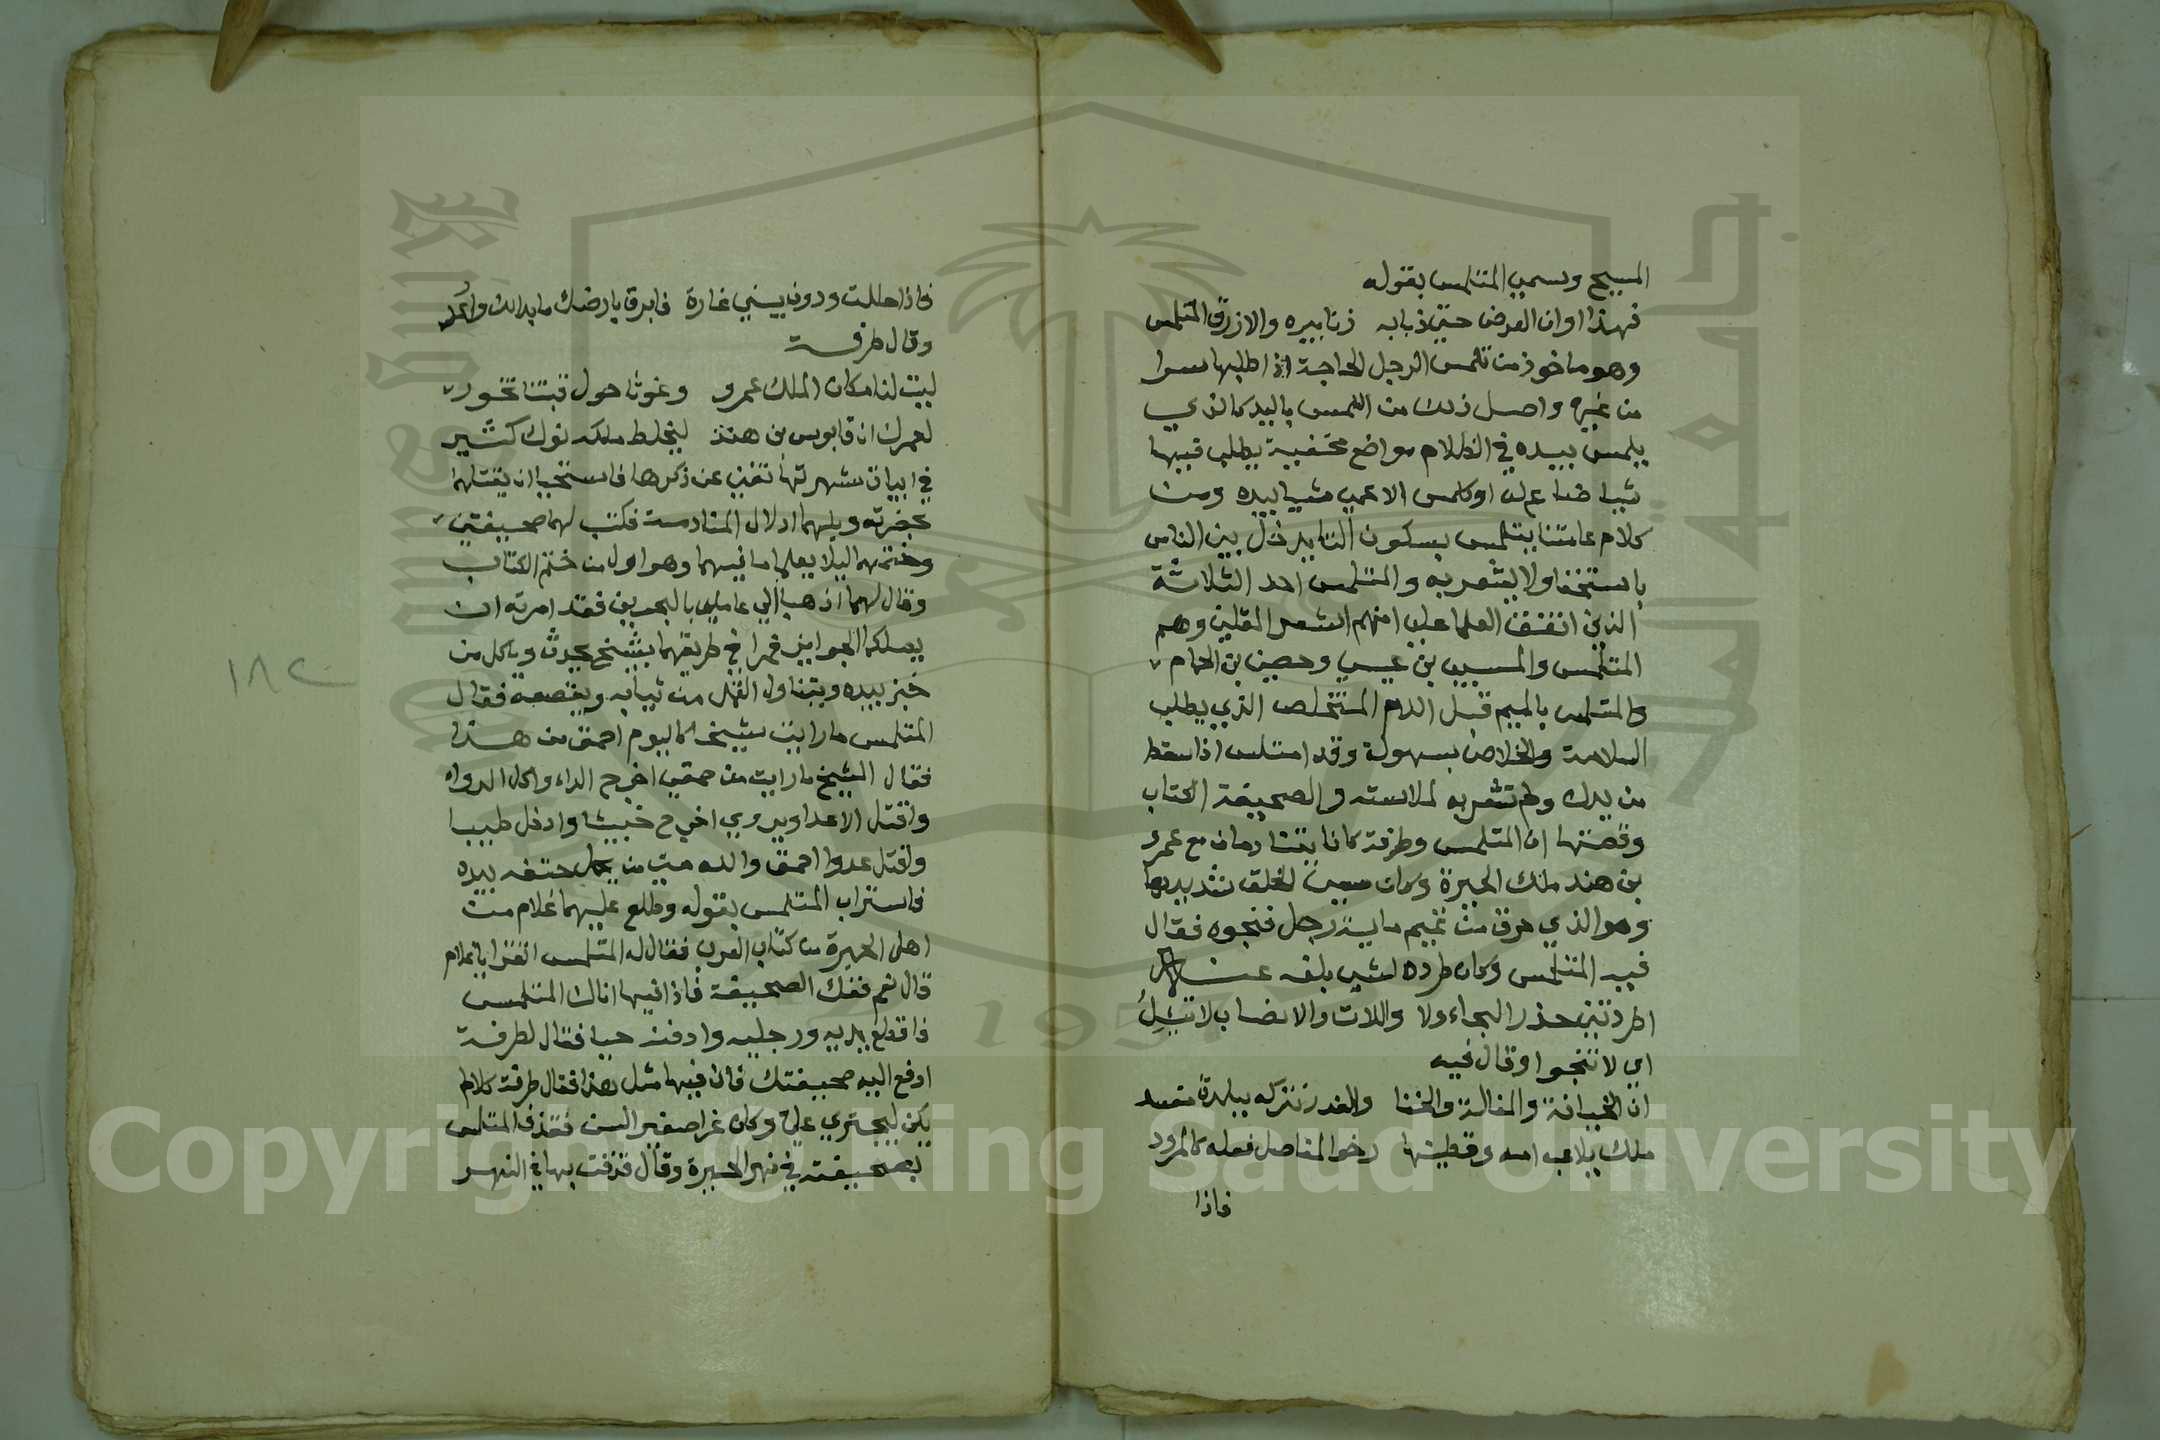 المسيح وسمي المتلمس بقوله
فهذا اوان العرض حتى ذبابه زنابيره والازرق المتلمس
وهو ماخوذ من تلمس الرجل الحاجة اذا طلبها سرا
من غيره واصل ذلك من اللمس باليد كالذي
يلمس بيده في الظلام مواضع مختفية يطلب فيها
شيا ضاع له او كلمس الاعمى شيا بيده ومن
كلام عامتنا يتلمس بسكون التا يدخل بين الناس
باستخفا ولا يشعر به والمتلمس احد الثلاثة
الذين اتفقت العلما على انهم اشعر المقلين وهم
المتلمس والمسيب بن عيسي وحصين بن الحمام
والمتملس بالميم قبل اللام المتخلص الذي يطلب
السلامة والخلاص بسهولة وقد امتلس اذا سقط
من يدك ولم تشعر به لملاسته والصحيفة الكتاب
وقصتها ان المتلمس وطرفة كانا يتنادمان مع عمرو
بن هند ملك الحيرة وكان سيئ الخلق شديدها
وهو الذي حرق من تميم ماية رجل فهجوه فقال
فيه المتلمس وكان طرده لشي بلغه عنه
اطردتني حذر الهجاء ولا واللات والانصاب لا تئل
اي لا تنجوا وقال فيه
ان الخيانة والمغالة والخنا والغدر تتركه ببلدة مفسد
ملك يلاعب امه وقطينها رخو المفاصل فعله كالمرود
فاذا
فاذا حللت ودون بيتي غارة فابرق بارضك ما بدالك وارعد
وقال طرفة
ليت لنا مكان الملك عمرو وغوثا حول قبتنا تخور
لعمرك ان قابوس بن هند ليخلط ملكه نوك كثير
في ابيات شهرتها تغني عن ذكرها فاستحيا ان يقتلهما
بحضرته ويلهما ادلال المنادمة فكتب لهما صحيفتين
وختمهما ليلا يعلما ما فيهما وهو اول من ختم الكتاب
وقال لهما اذهبا الي عاملي بالبحرين فقد امرته ان
يصلكما الجوايز فمرا في طريقهما بشيخ يحدث وياكل من
خبز بيده ويتناول القمل من ثيابه ويقصعه فقال
المتلمس ما رايت شيخا كاليوم احمق من هذا
فقال الشيخ ما رايت من حمقي اخرج الداء واكل الدواء
واقتل الاعدا ويروي اخرج خبيثا وادخل طيبا
واقتل عدوا احمق والله مني من يحمل حتفه بيده
فاستراب المتلمس بقوله وطلع عليهما غلام من
اهل الحيرة من كتاب العرب فقال له المتلمس اتقرا ياغلام
قال نعم ففك الصحيفة فاذا فيها اذا اتاك المتلمس
فاقطع يديه ورجليه وادفنه حيا فقال لطرفة
ادفع اليه صحيفتك فان فيها مثل هذا فقال طرفة كلا لم
يكن ليجتري علي وكان غرا صغير السن فقذف المتلمس
بصحيفته في نهر الحيرة وقال قذفت بها في النهر
١٨٢
Copyright © King Saud University
King Saud University
جامعة الملك سعود
1957